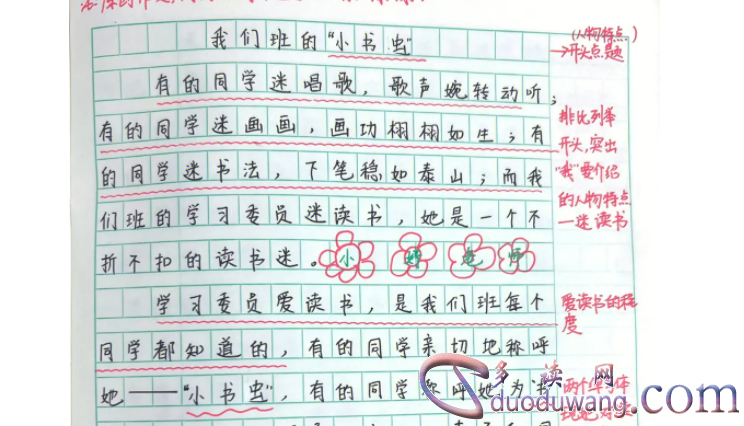 我们班的"小书虫"
(人物特点)
→开头点题
有的同学迷唱歌，歌声婉转动听；
有的同学迷画画，画功栩栩如生；有
的同学迷书法，下笔稳如泰山；而我
们班的学习委员迷读书，她是一个不
折不扣的读书迷。
排比列举
开头，突出
"我"要介绍
的人物特点
—迷读书
小
学习委员爱读书，是我们班每个
同学都知道的，有的同学亲切地称呼
她——"小书虫"，有的同学称呼她为书
爱读书的程
度
两个
多读网
duoduwang.com